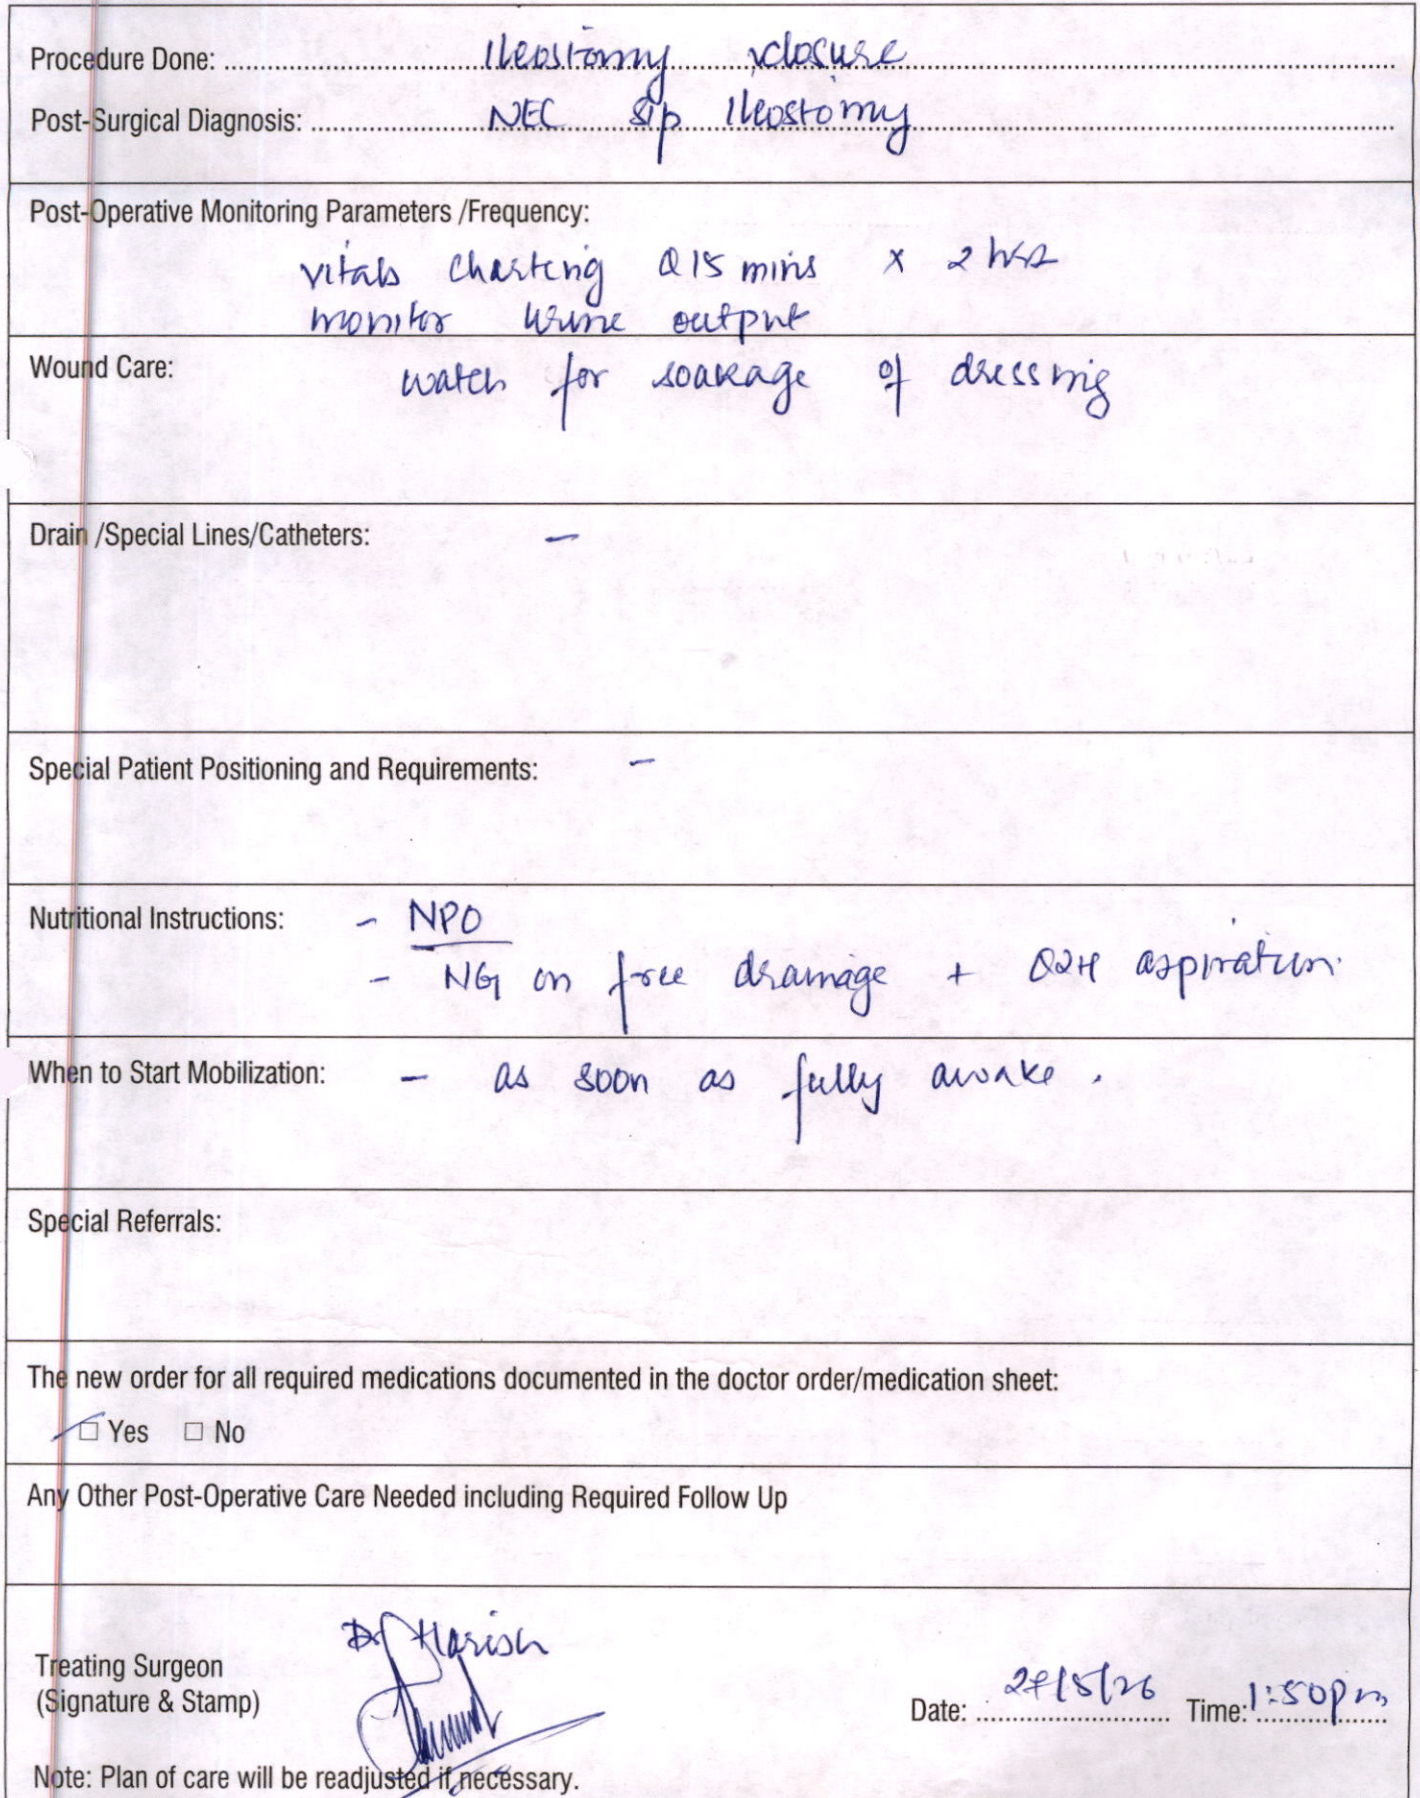 Procedure Done: Ileostomy closure
Post-Surgical Diagnosis: NEC s/p Ileostomy
Post-Operative Monitoring Parameters /Frequency:
vitals charting Q15 mins x 2 hrs
monitor urine output
Wound Care: watch for soakage of dressing
Drain /Special Lines/Catheters: -
Special Patient Positioning and Requirements: -
Nutritional Instructions: - NPO
- NG on free drainage + Q2H aspiration.
When to Start Mobilization: - as soon as fully awake.
Special Referrals:
The new order for all required medications documented in the doctor order/medication sheet:
☑ Yes ☐ No
Any Other Post-Operative Care Needed including Required Follow Up
Dr Harish
Treating Surgeon
(Signature & Stamp)
Date: 27/5/26 Time: 1:50pm
Note: Plan of care will be readjusted if necessary.